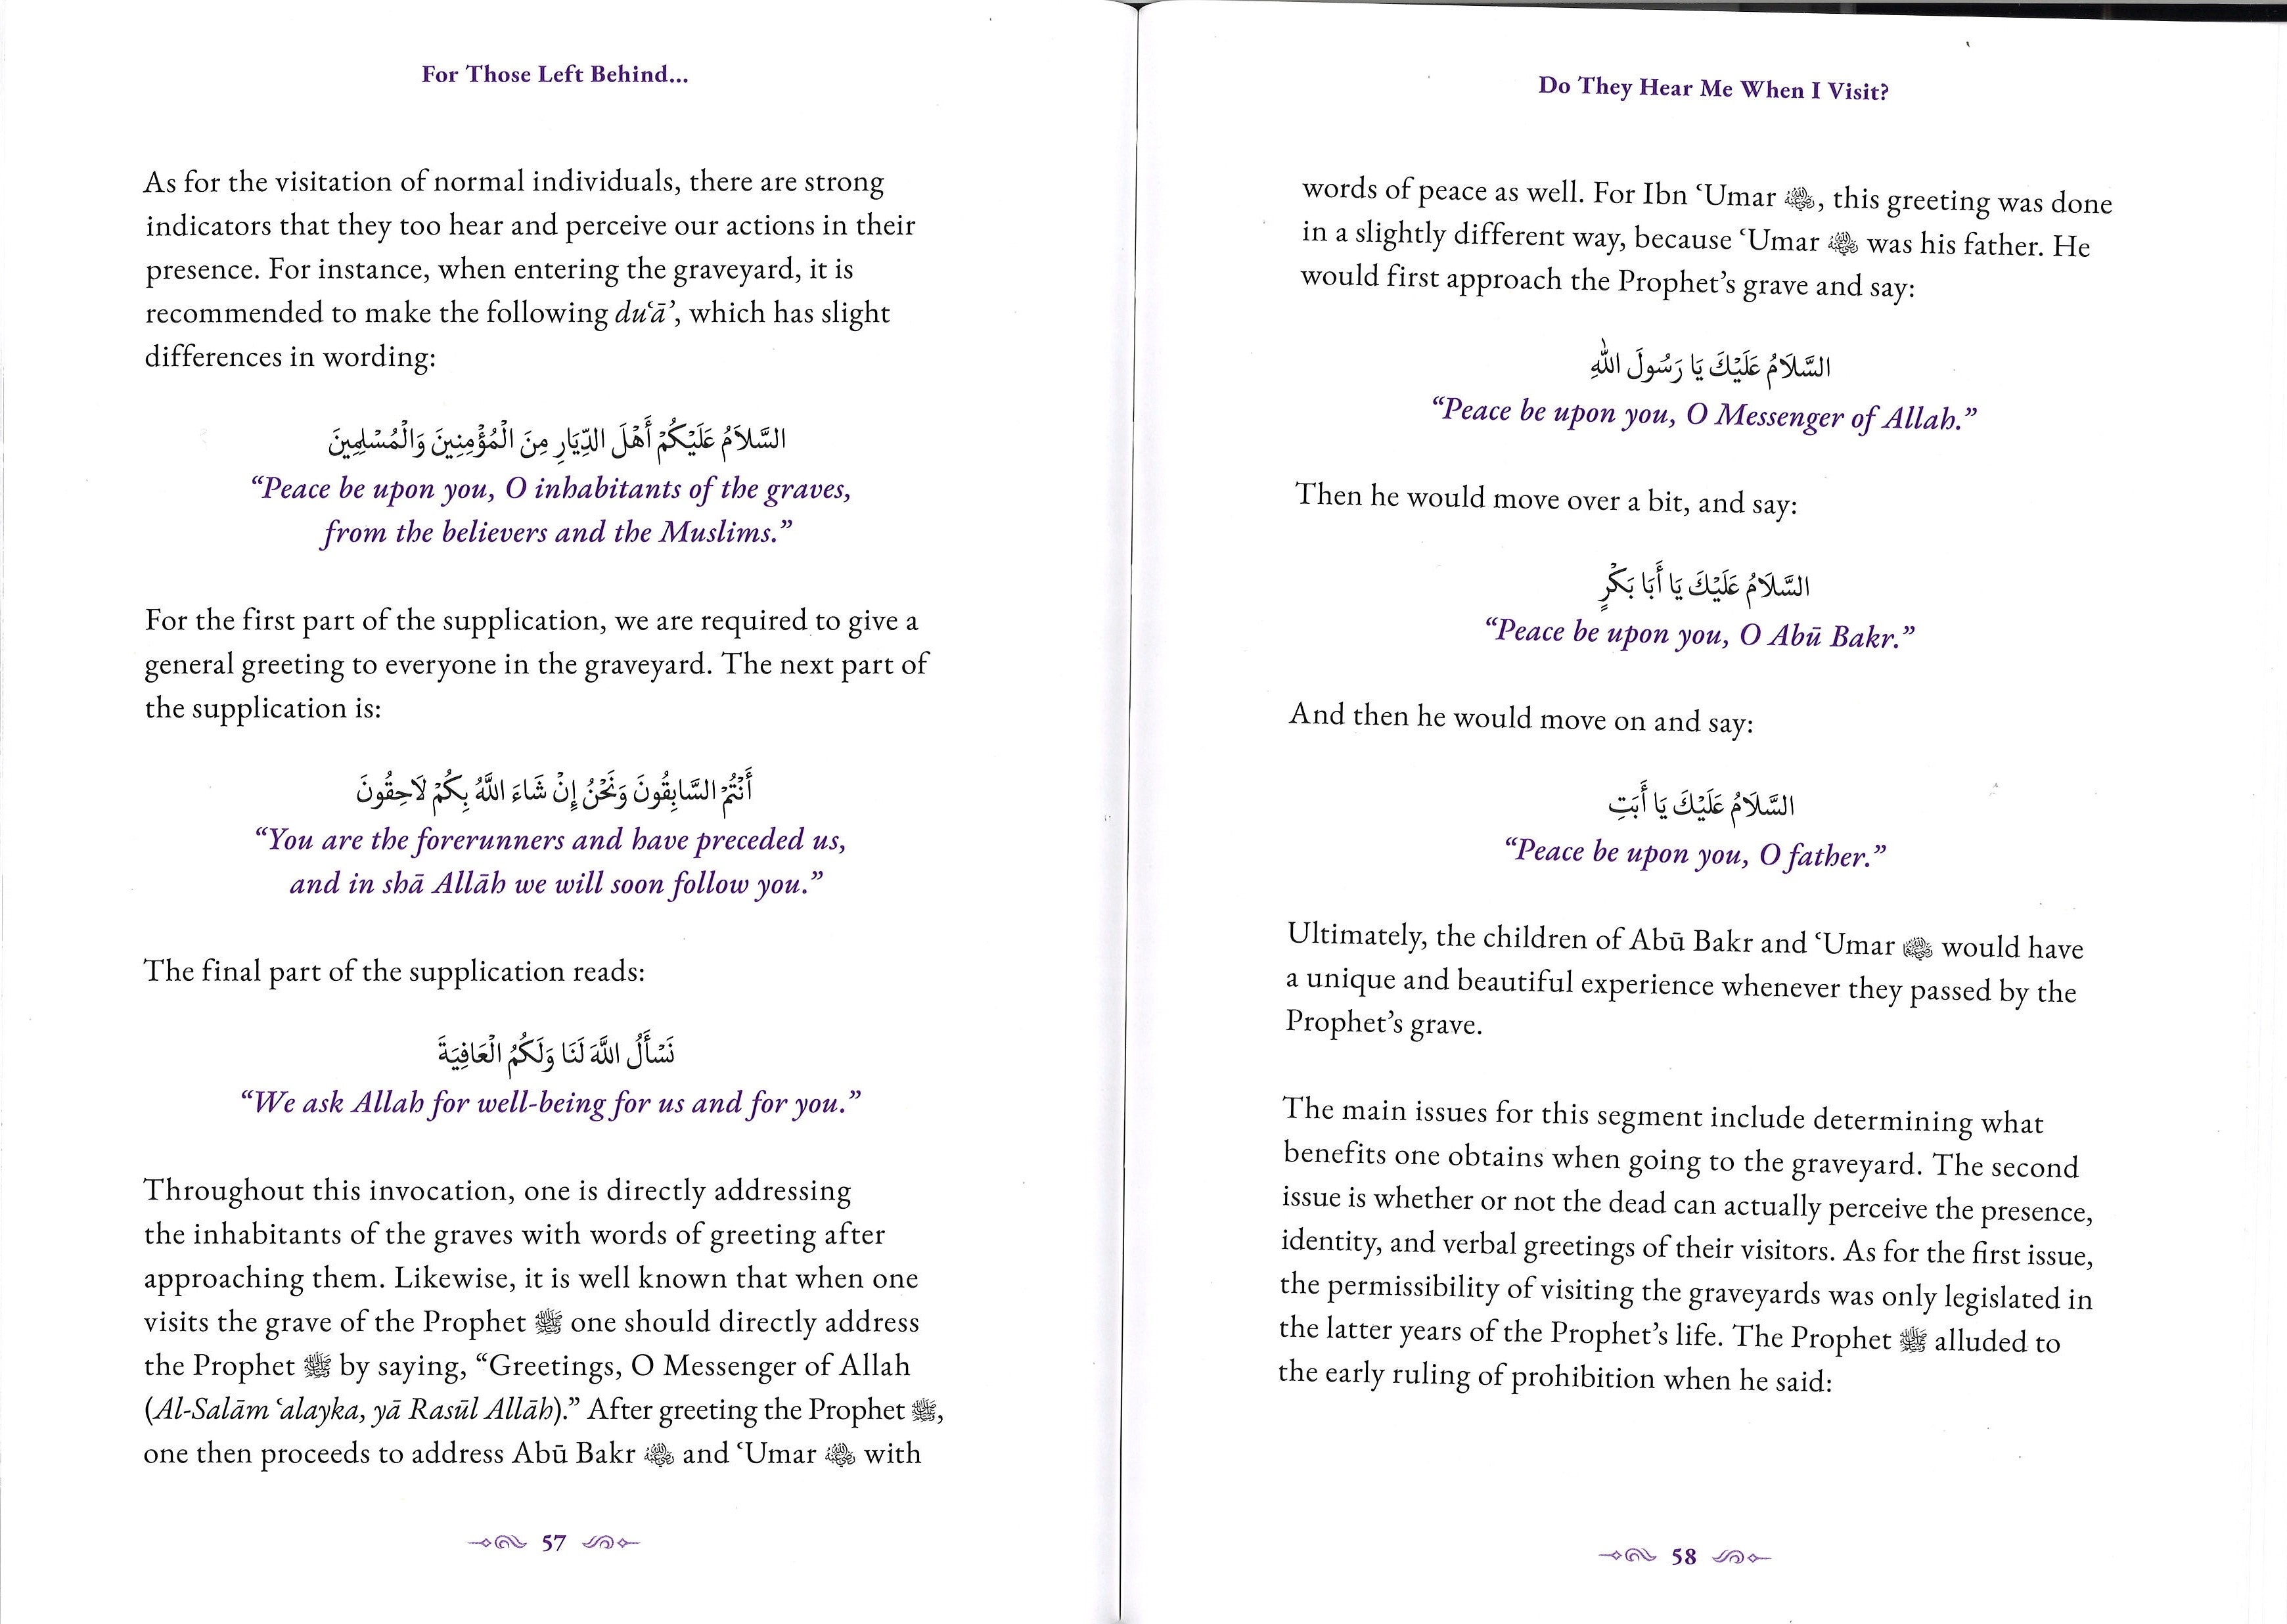 For Those Left Behind...
As for the visitation of normal individuals, there are strong
indicators that they too hear and perceive our actions in their
presence. For instance, when entering the graveyard, it is
recommended to make the following duʿāʾ, which has slight
differences in wording:
السَّلَامُ عَلَيْكُمْ أَهْلَ الدِّيَارِ مِنَ الْمُؤْمِنِينَ وَالْمُسْلِمِينَ
“Peace be upon you, O inhabitants of the graves,
from the believers and the Muslims.”
For the first part of the supplication, we are required to give a
general greeting to everyone in the graveyard. The next part of
the supplication is:
أَنْتُمُ السَّابِقُونَ وَنَحْنُ إِنْ شَاءَ اللَّهُ بِكُمْ لَاحِقُونَ
“You are the forerunners and have preceded us,
and in shā Allāh we will soon follow you.”
The final part of the supplication reads:
نَسْأَلُ اللَّهَ لَنَا وَلَكُمُ الْعَافِيَةَ
“We ask Allah for well-being for us and for you.”
Throughout this invocation, one is directly addressing
the inhabitants of the graves with words of greeting after
approaching them. Likewise, it is well known that when one
visits the grave of the Prophet ﷺ one should directly address
the Prophet ﷺ by saying, “Greetings, O Messenger of Allah
(Al-Salām ʿalayka, yā Rasūl Allāh).” After greeting the Prophet ﷺ,
one then proceeds to address Abū Bakr رضي الله عنه and ʿUmar رضي الله عنه with
57
Do They Hear Me When I Visit?
words of peace as well. For Ibn ʿUmar رضي الله عنه, this greeting was done
in a slightly different way, because ʿUmar رضي الله عنه was his father. He
would first approach the Prophet’s grave and say:
السَّلَامُ عَلَيْكَ يَا رَسُولَ اللهِ
“Peace be upon you, O Messenger of Allah.”
Then he would move over a bit, and say:
السَّلَامُ عَلَيْكَ يَا أَبَا بَكْرٍ
“Peace be upon you, O Abū Bakr.”
And then he would move on and say:
السَّلَامُ عَلَيْكَ يَا أَبَتِ
“Peace be upon you, O father.”
Ultimately, the children of Abū Bakr and ʿUmar رضي الله عنهما would have
a unique and beautiful experience whenever they passed by the
Prophet’s grave.
The main issues for this segment include determining what
benefits one obtains when going to the graveyard. The second
issue is whether or not the dead can actually perceive the presence,
identity, and verbal greetings of their visitors. As for the first issue,
the permissibility of visiting the graveyards was only legislated in
the latter years of the Prophet’s life. The Prophet ﷺ alluded to
the early ruling of prohibition when he said:
58